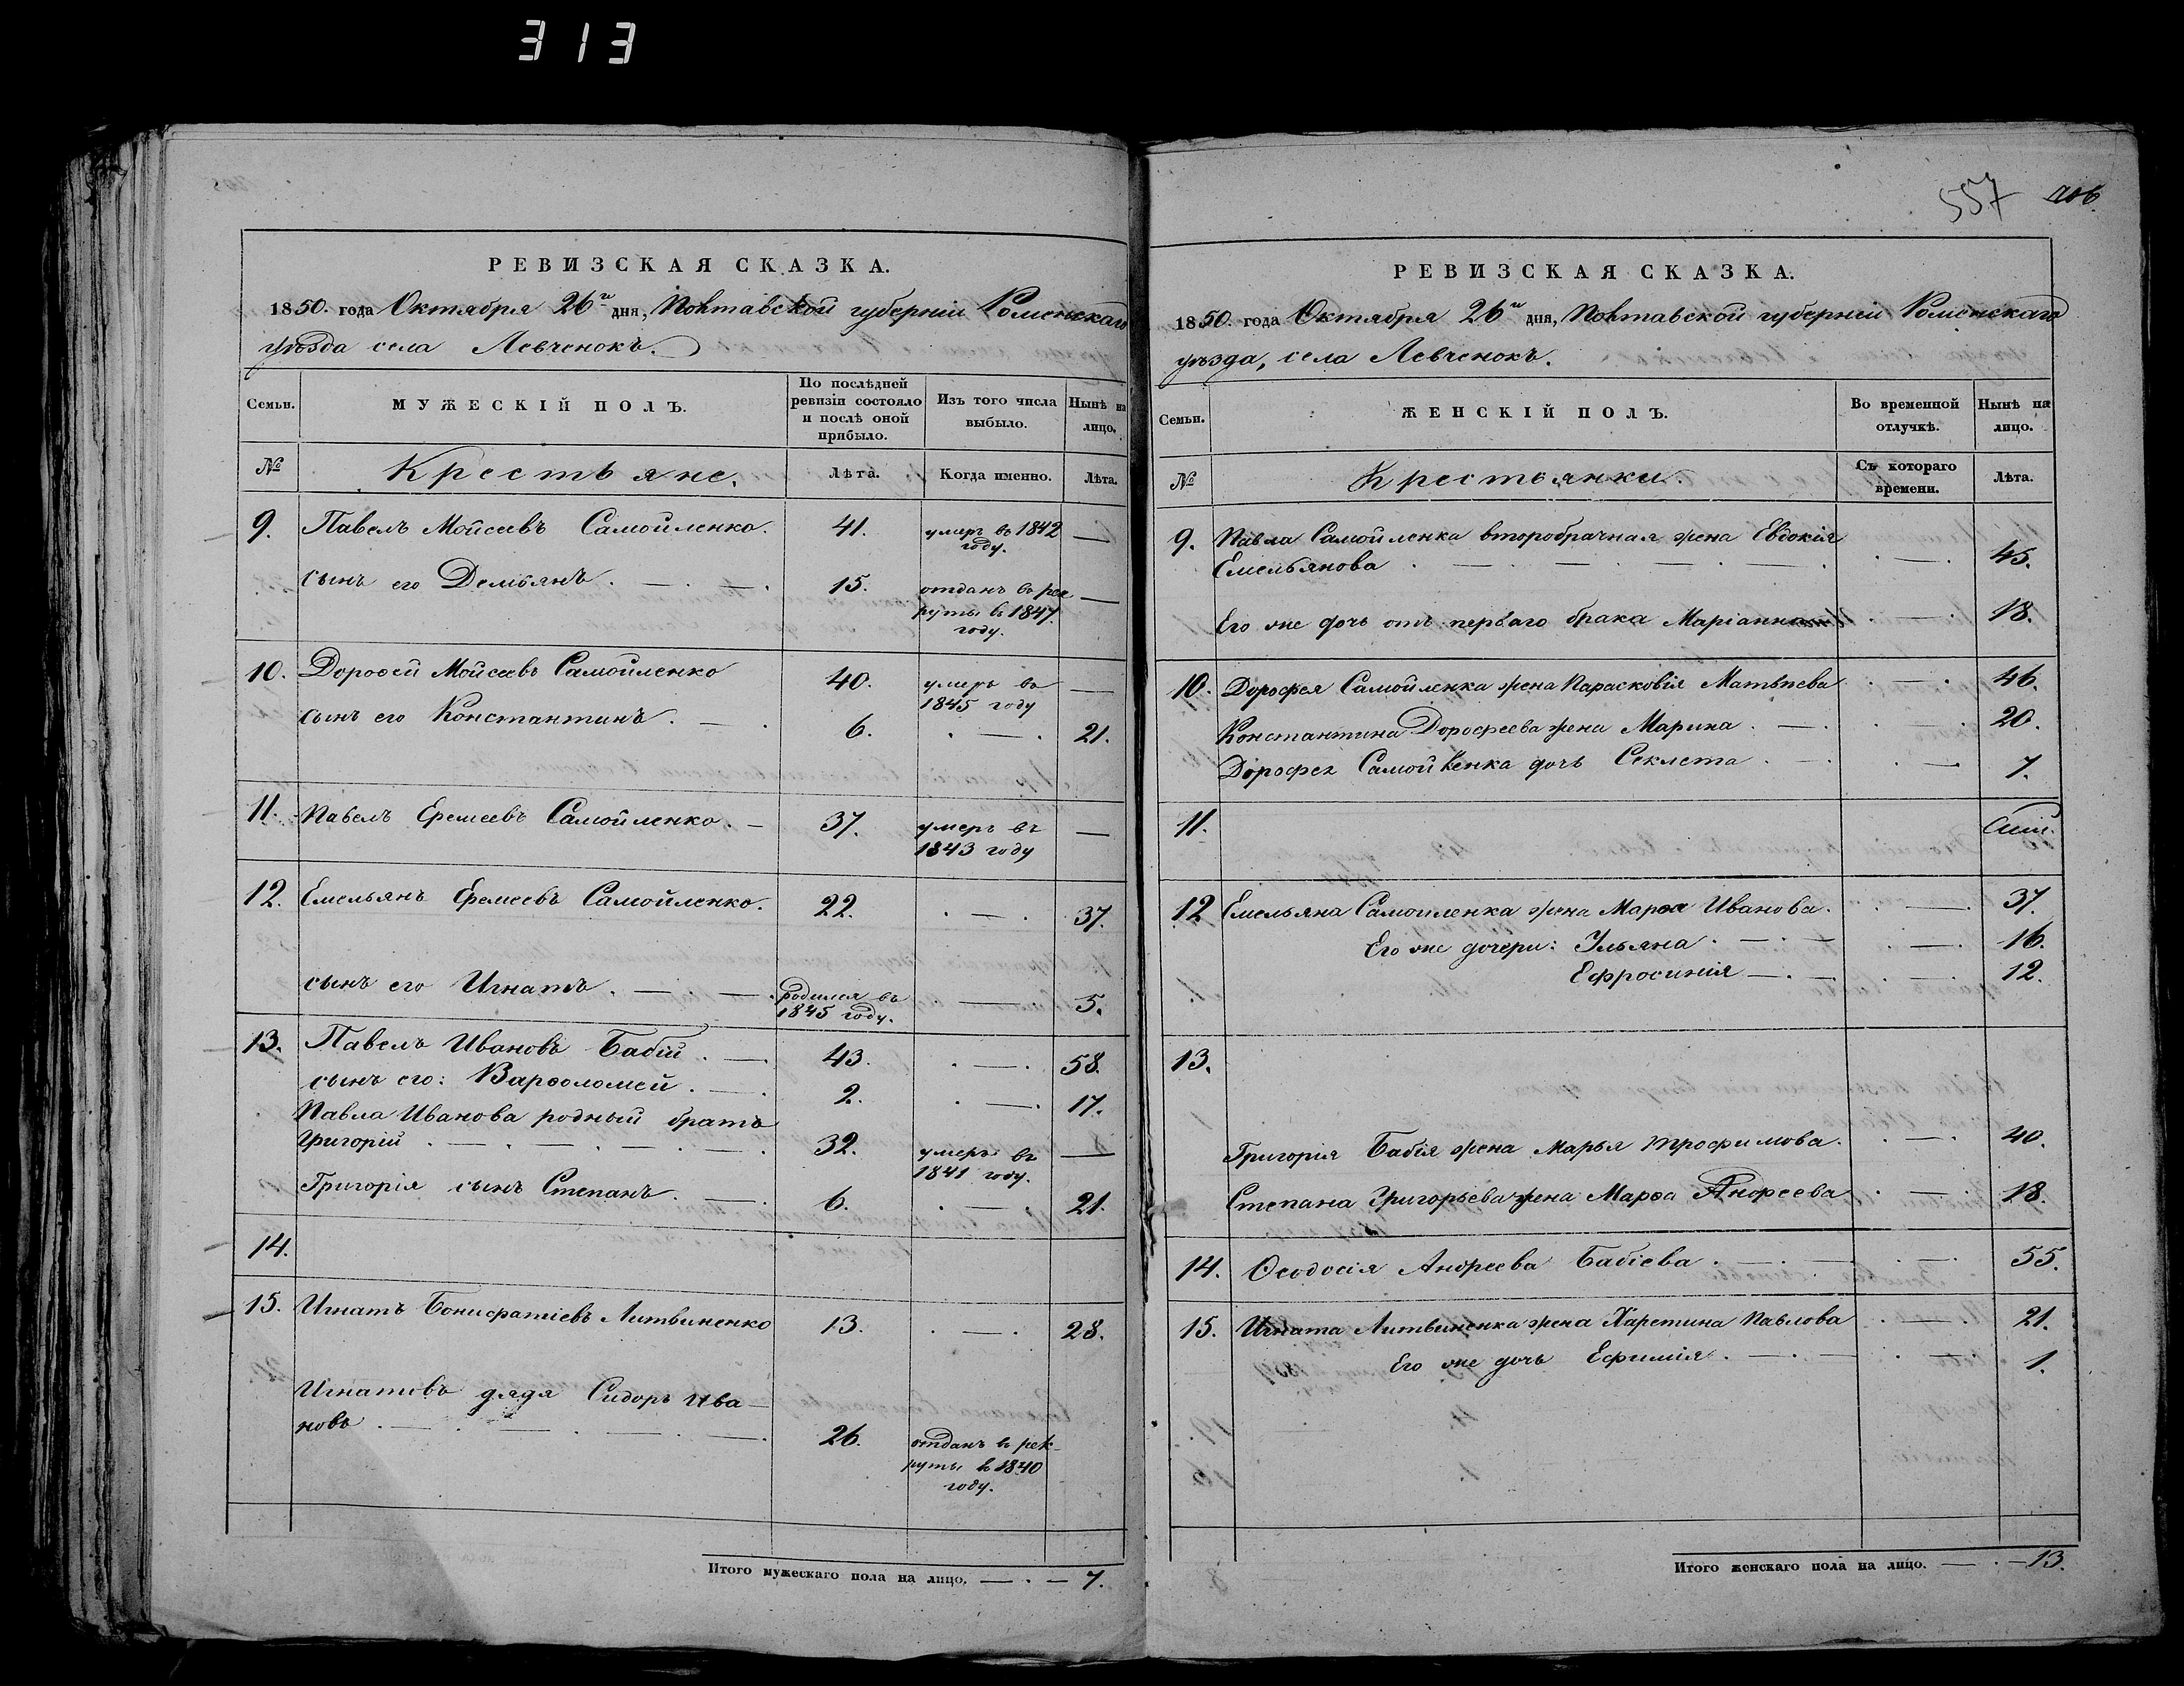 313
РЕВИЗСКАЯ СКАЗКА.
1850. года Октября 26го дня, Полтавской губерніи Роменскаго
уѣзда села Левченокъ.
Семьи.
МУЖЕСКІЙ ПОЛЪ.
По послѣдней
ревизіи состояло
и послѣ оной
прибыло.
Изъ того числа
выбыло.
Нынѣ на
лицо.
№
Крестьяне.
Лѣта.
Когда именно.
Лѣта.
9. Павелъ Мойсеевъ Самойленко. 41. умеръ въ 1842 —
году.
сынъ его Демьянъ. — . 15. отданъ въ рек —
руты в 1847.
году.
10. Дорофей Мойсеевъ Самойленко 40. умеръ въ —
1845 году
сынъ его Константинъ. — . 6. . — . 21.
11. Павелъ Еремеевъ Самойленко. — 37. умеръ въ —
1843 году
12. Емельянъ Еремеевъ Самойленко. 22. . — . 37.
сынъ его Игнатъ. — . — . родился въ — 5.
1845 году.
13. Павелъ Ивановъ Бабій. — 43. . — . 58.
сынъ его: Варѳоломей. — . 2. . — . 17.
Павла Иванова родный братъ
Григорій . — . — . — . 32. умеръ въ —
1841 году.
Григорія сынъ Степанъ. — . 6. . — . 21.
14.
15. Игнатъ Бонифатіевъ Литвиненко 13. . — . 28.
Игнатовъ дядя Сидоръ Ива—
новъ . — . — . — . — . 26. отданъ в рек-
руты в 1840
году.
Итого мужескаго пола на лицо. — . — 7.
557 206.
РЕВИЗСКАЯ СКАЗКА.
1850. года Октября 26го дня, Полтавской губерніи Роменскаго
уѣзда, села Левченокъ.
Семьи.
ЖЕНСКІЙ ПОЛЪ.
Во временной
отлучкѣ.
Нынѣ на
лицо.
№
Крестьянки.
Съ котораго
времени.
Лѣта.
9. Павла Самойленка второбрачная жена Евдокія
Емельянова . — . — . — . . — . 45.
Его же дочь отъ перваго брака Маріанна . — . 18.
10. Дорофея Самойленка жена Парасковія Матвѣева . — . 46.
Константина Дорофеева жена Марина . — . . — . 20.
Дорофея Самойленка дочь Секлета . — . . — . 7.
11.
12 Емельяна Самойленка жена Марѳа Иванова. . — . 37.
Его же дочери: Ульяна. — . — . — . 16.
Ефросинія — . — . — . 12.
13.
Григорія Бабія жена Марья Трофимова. . — . 40.
Степана Григорьева жена Марѳа Андреева . — . 18.
14. Ѳеодосія Андреева Бабіева. — . — . — . 55.
15. Игната Литвиненка жена Харетина Павлова . — . 21.
Его же дочь Ефимія. — . — . — 1.
Итого женскаго пола на лицо. — . — 13.